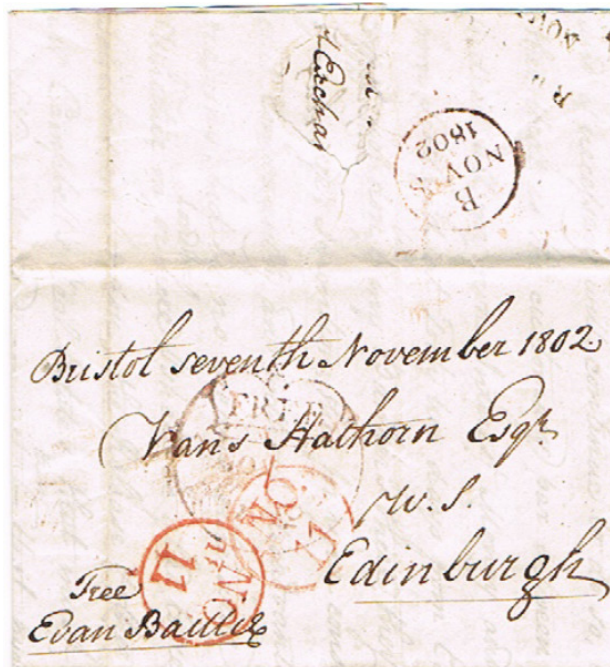 Cochra
B
NOV 8
1802
Bristol seventh November 1802
FREE
Vans Hathorn Esqr.
W.S.
Edinburgh
NO
11
Free
Evan Baillie